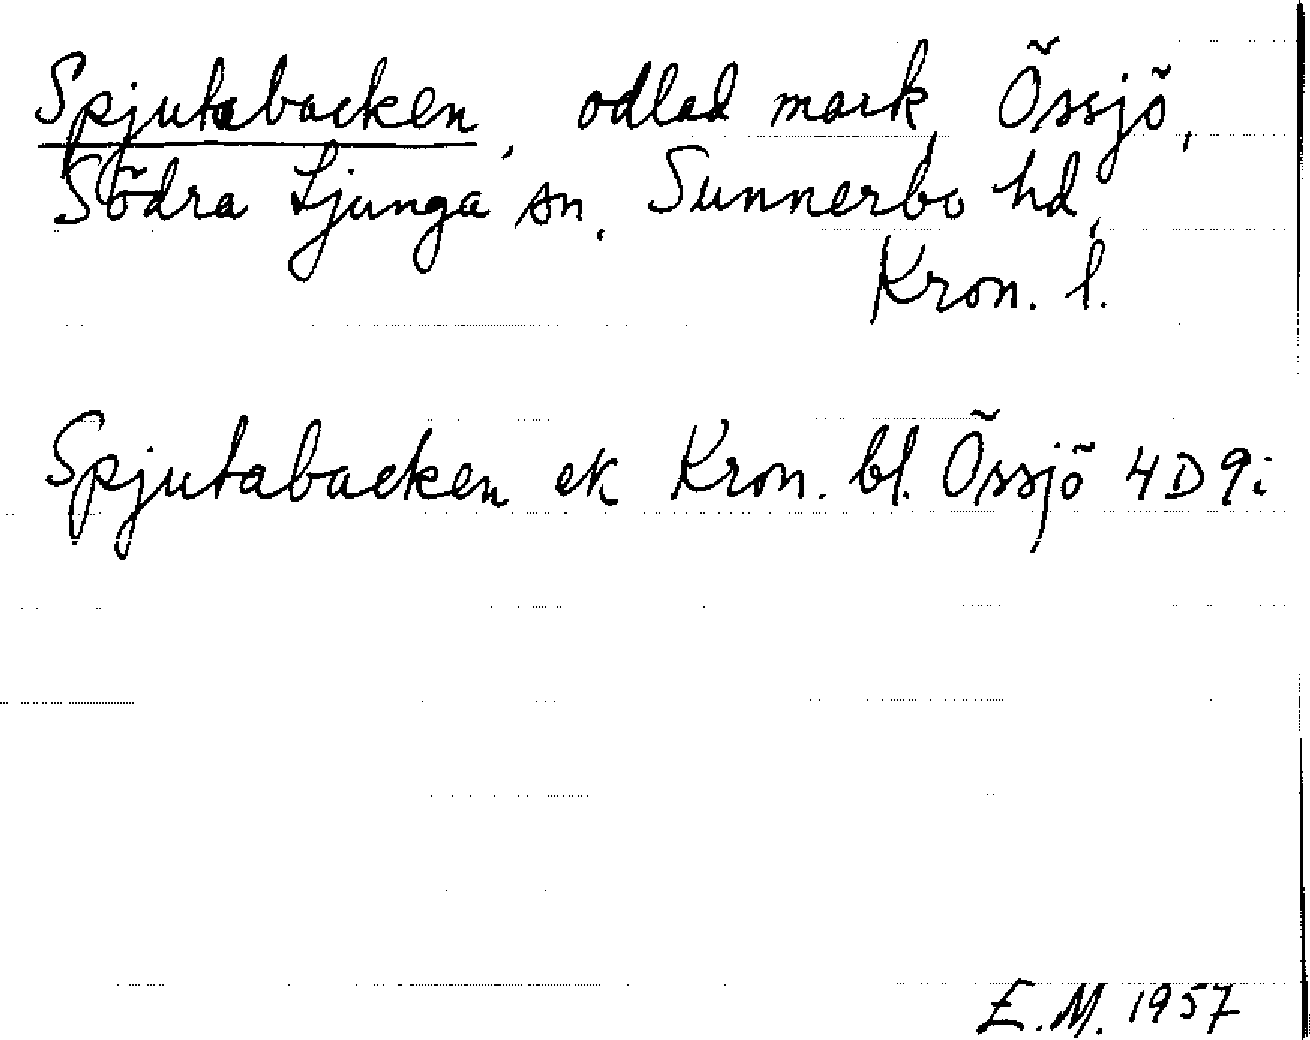 Spjutabacken, odlad mark, Össjö,
Södra Ljunga sn, Sunnerbo hd,
Kron. l.
Spjutabacken ek Kron. bl. Össjö 4D9i
E.M. 1957